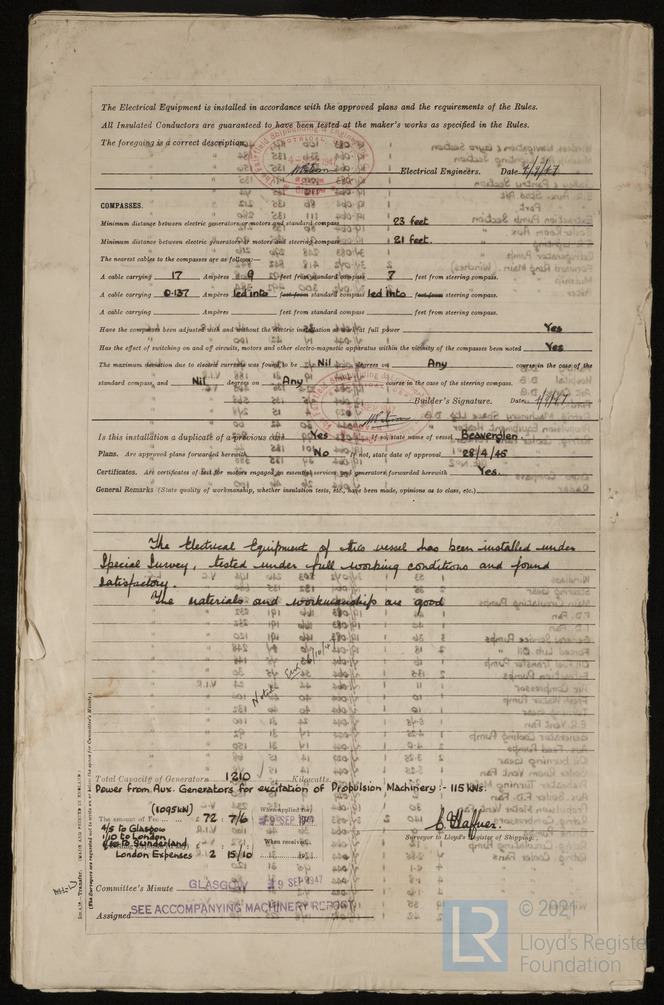 The Electrical Equipment is installed in accordance with the approved plans and the requirements of the Rules.
All Insulated Conductors are guaranteed to have been tested at the maker's works as specified in the Rules.
The foregoing is a correct description,
Electrical Engineers. Date
COMPASSES.
Minimum distance between electric generators or motors and standard compass 23 feet
Minimum distance between electric generators or motors and steering compass 21 feet.
The nearest cables to the compasses are as follows:—
A cable carrying 17 Ampères 9 feet from standard compass 7 feet from steering compass.
A cable carrying 0.137 Ampères led into feet from standard compass led into feet from steering compass.
A cable carrying Ampères feet from standard compass feet from steering compass.
Have the compasses been adjusted with and without the electric installation at work at full power Yes
Has the effect of switching on and off circuits, motors and other electro-magnetic apparatus within the vicinity of the compasses been noted Yes
The maximum deviation due to electric currents was found to be Nil degrees on Any course in the case of the
standard compass, and Nil degrees on Any course in the case of the steering compass.
Builder's Signature. Date
Is this installation a duplicate of a previous case Yes If so, state name of vessel Beaverglen.
Plans. Are approved plans forwarded herewith No If not, state date of approval 28/4/45
Certificates. Are certificates of test for motors engaged on essential services and generators forwarded herewith Yes.
General Remarks (State quality of workmanship, whether insulation tests, etc., have been made, opinions as to class, etc.)
The Electrical Equipment of this vessel has been installed under
Special Survey, tested under full working conditions and found
satisfactory.
The materials and workmanship are good
Noted
Total Capacity of Generators 1210 Kilowatts.
Power from Aux. Generators for excitation of Propulsion Machinery :- 115 KWs.
(1095KW)
The amount of Fee £ 72 : 7/6 When applied for 9 SEP 1947
4/5 to Glasgow
1/10 to London
to Sunderland When received
London Expenses £ 2 15/10
Surveyor to Lloyd's Register of Shipping.
Committee's Minute GLASGOW 9 SEP 1947
Assigned SEE ACCOMPANYING MACHINERY REPORT
(The Surveyors are requested not to write on or below the space for Committee's Minute.)
LR
© 2021
Lloyd's Register
Foundation